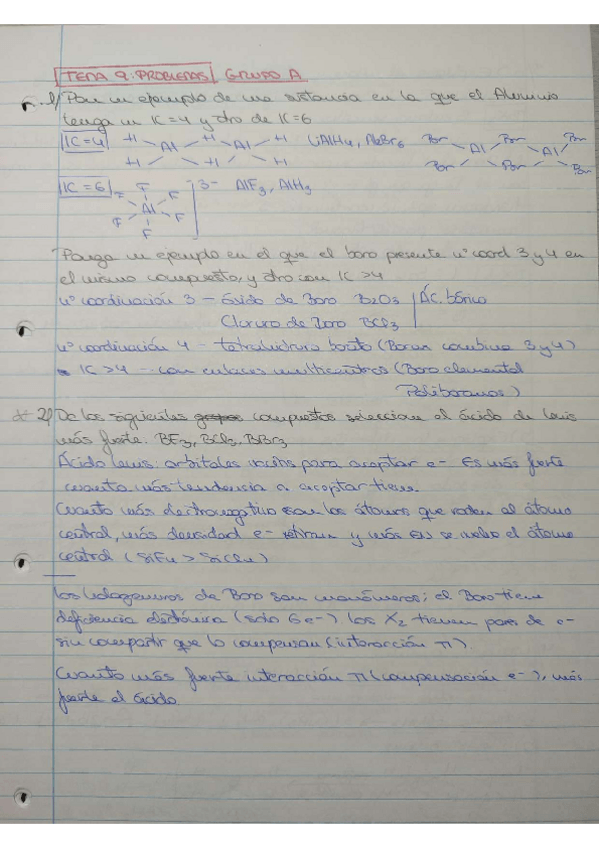 TEMA 9: PROBLEMAS GRUPO A
1) Pon un ejemplo de una sustancia en la que el Aluminio
tenga un IC=4 y otro de IC=6
IC=4 H H H LiAlH4, Br Br Br
Al Al Al Al
H H H Br Br Br
IC=6 F 3- AlF3, AlH3
F F
Al
F F
F
Ponga un ejemplo en el que el boro presente nº coord 3 y 4 en
el mismo compuesto, y otro con IC >4
nº coordinación 3 - Óxido de Boro B2O3 Ác. bórico
Cloruro de Boro BCl3
nº coordinación 4 - tetrahidruro borato (Borax combina 3 y 4)
IC >4 - con enlaces multicéntricos (Boro elemental
Poliboranos)
* 2) De los siguientes compuestos seleccion el ácido de Lewis
más fuerte. BF3, BCl3, BBr3
Ácido Lewis: orbitales vacíos para aceptar e- Es más fuerte
cuanta más tendencia a aceptar tiene.
Cuanto más electronegativo son los átomos que rodean al átomo
central, más densidad e- retiran y más se vuelve el átomo
central (SiF4 > SiCl4)
Los halogenuros de Boro son monómeros; el Boro tiene
deficiencia electrónica (solo 6e-) los X2 tienen pares de e-
sin compartir que lo compensan (interacción π).
Cuanto más fuerte interacción π (compensación e-), más
fuerte el ácido